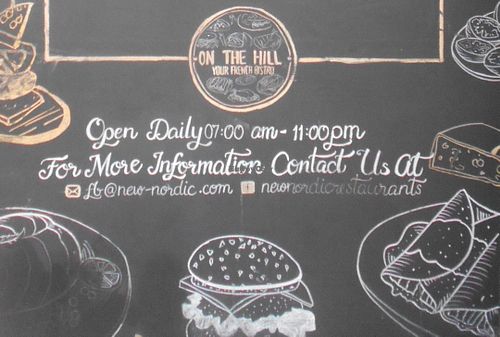 ON THE HILL
YOUR FRENCH BISTRO
Open Daily 07:00 am - 11:00pm
For More Information Contact Us At
fb@new-nordic.com newnordicrestaurants